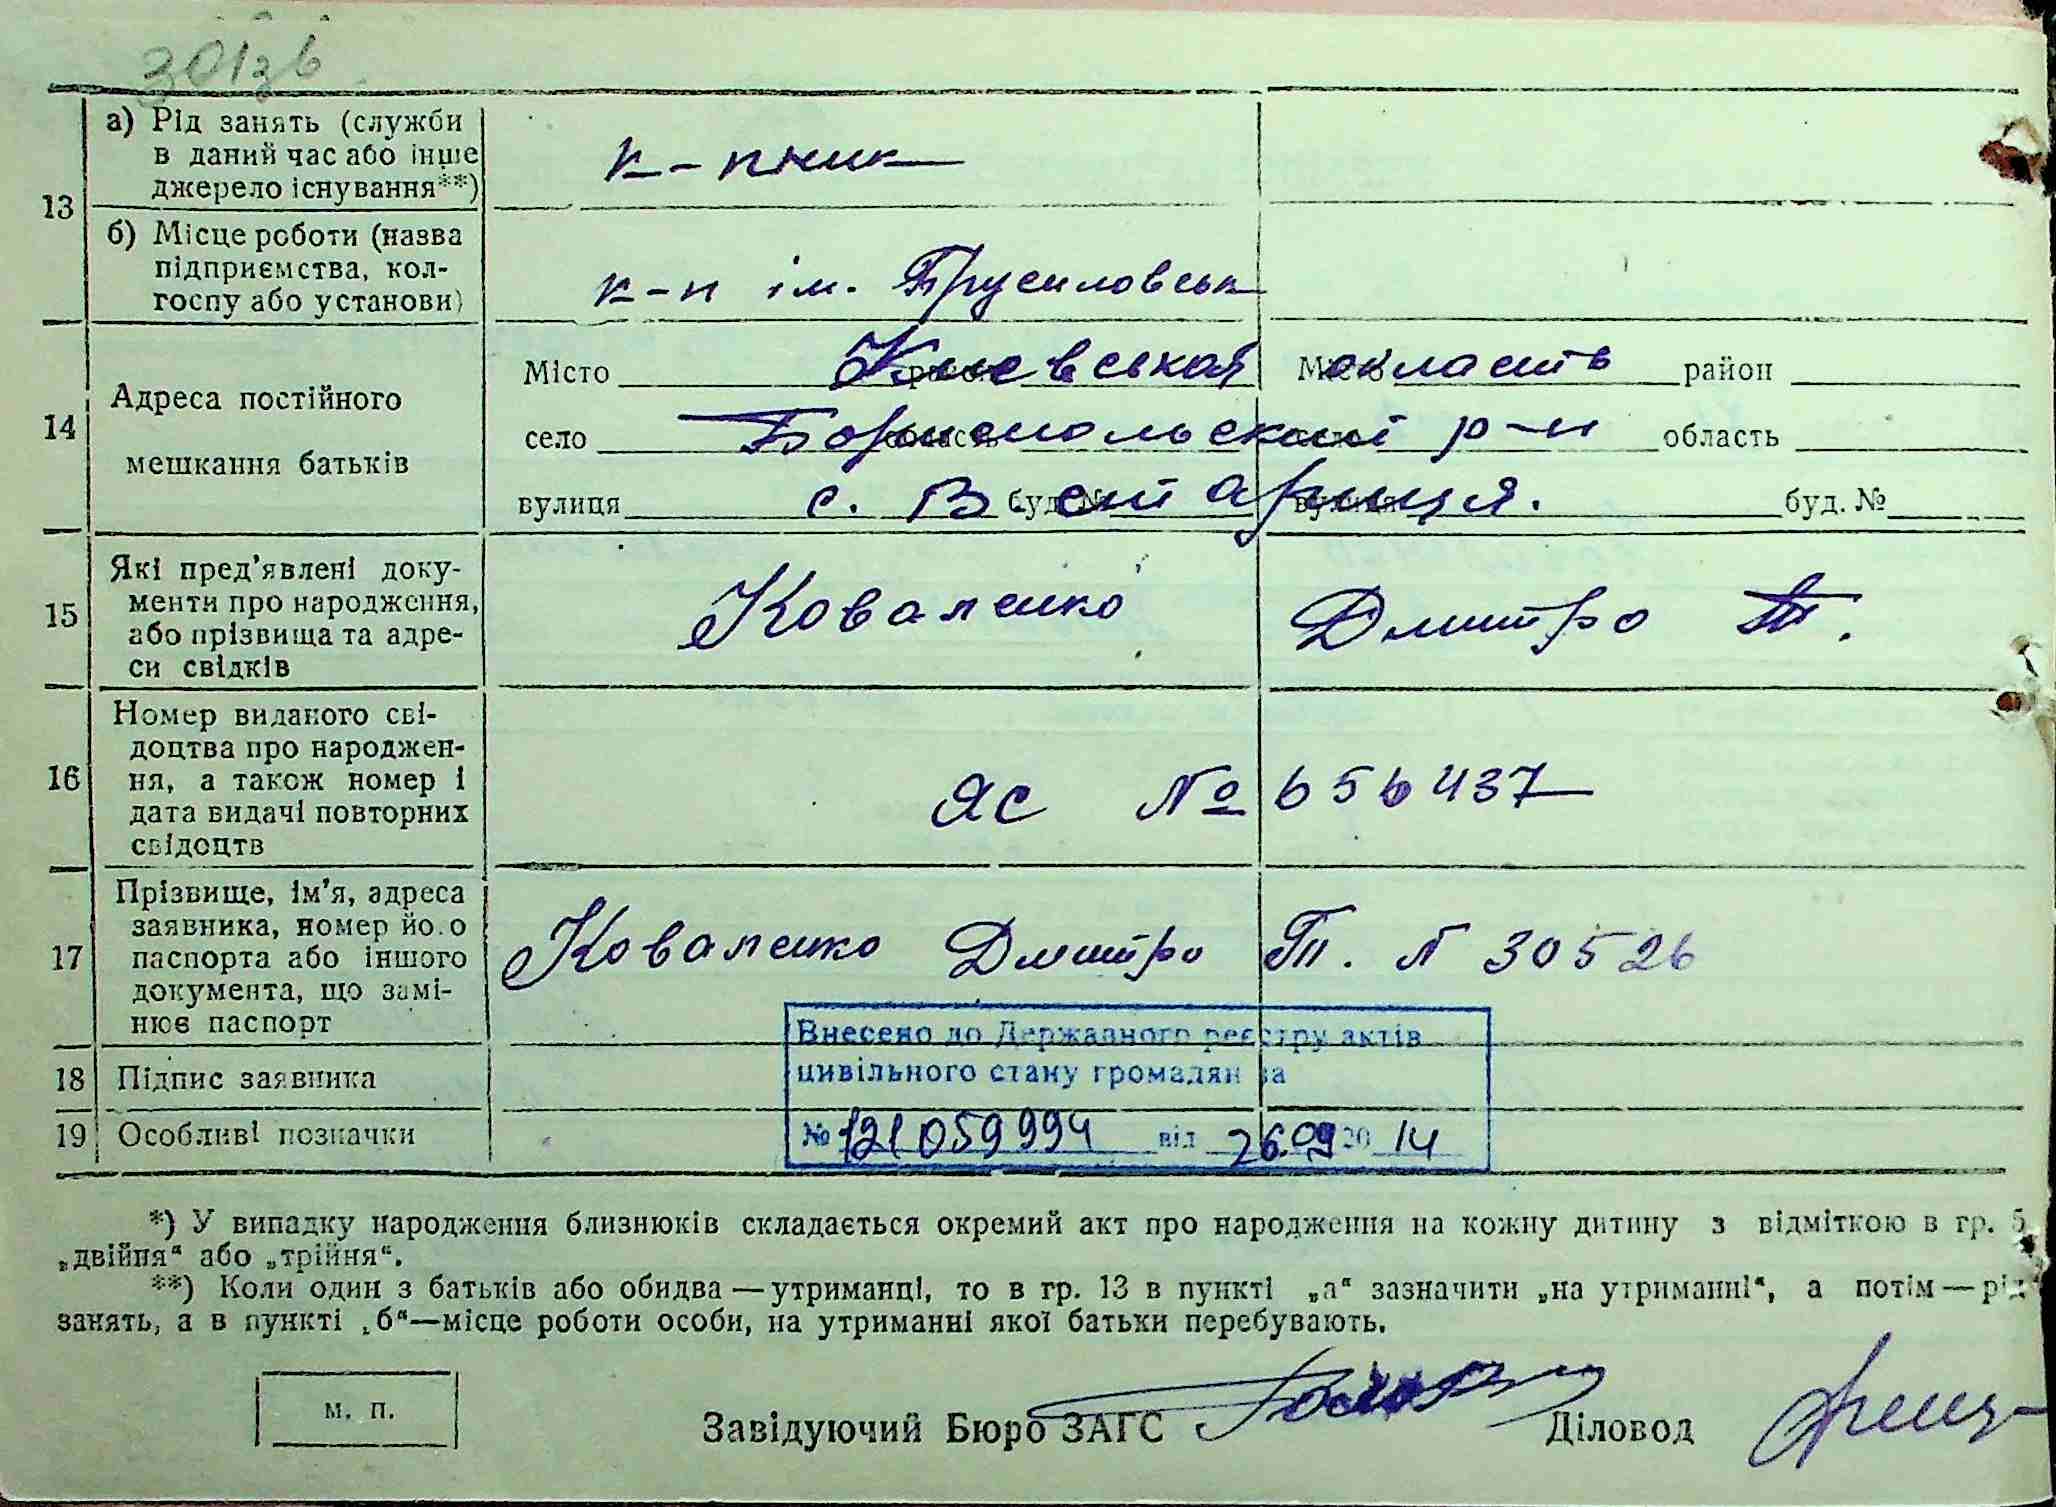 301зв
13
а) Рід занять (служби
в даний час або інше
джерело існування**)
к-пник
б) Місце роботи (назва
підприємства, кол-
госпу або установи)
к-п ім. Брусиловськ
14
Адреса постійного
мешкання батьків
Місто район Киевськая Місто область район
село Бориспольский р-н область
вулиця с. В. буд. № старица. вулиця буд. №
15
Які пред'явлені доку-
менти про народження,
або прізвища та адре-
си свідків
Коваленко Дмитро Т.
16
Номер виданого сві-
доцтва про народжен-
ня, а також номер і
дата видачі повторних
свідоцтв
ЯС № 656437
17
Прізвище, ім'я, адреса
заявника, номер йо.о
паспорта або іншого
документа, що замі-
нює паспорт
Коваленко Дмитро Т. № 30526
Внесено до Державного реєстру актів
цивільного стану громадян за
№ 121059994 від 26.09 2014
18 Підпис заявника
19 Особливі позначки
*) У випадку народження близнюків складається окремий акт про народження на кожну дитину з відміткою в гр. 5
„двійня“ або „трійня“.
**) Коли один з батьків або обидва — утриманці, то в гр. 13 в пункті „а“ зазначити „на утриманні“, а потім — рід
занять, а в пункті „б“—місце роботи особи, на утриманні якої батьки перебувають.
м. п.
Завідуючий Бюро ЗАГС Діловод